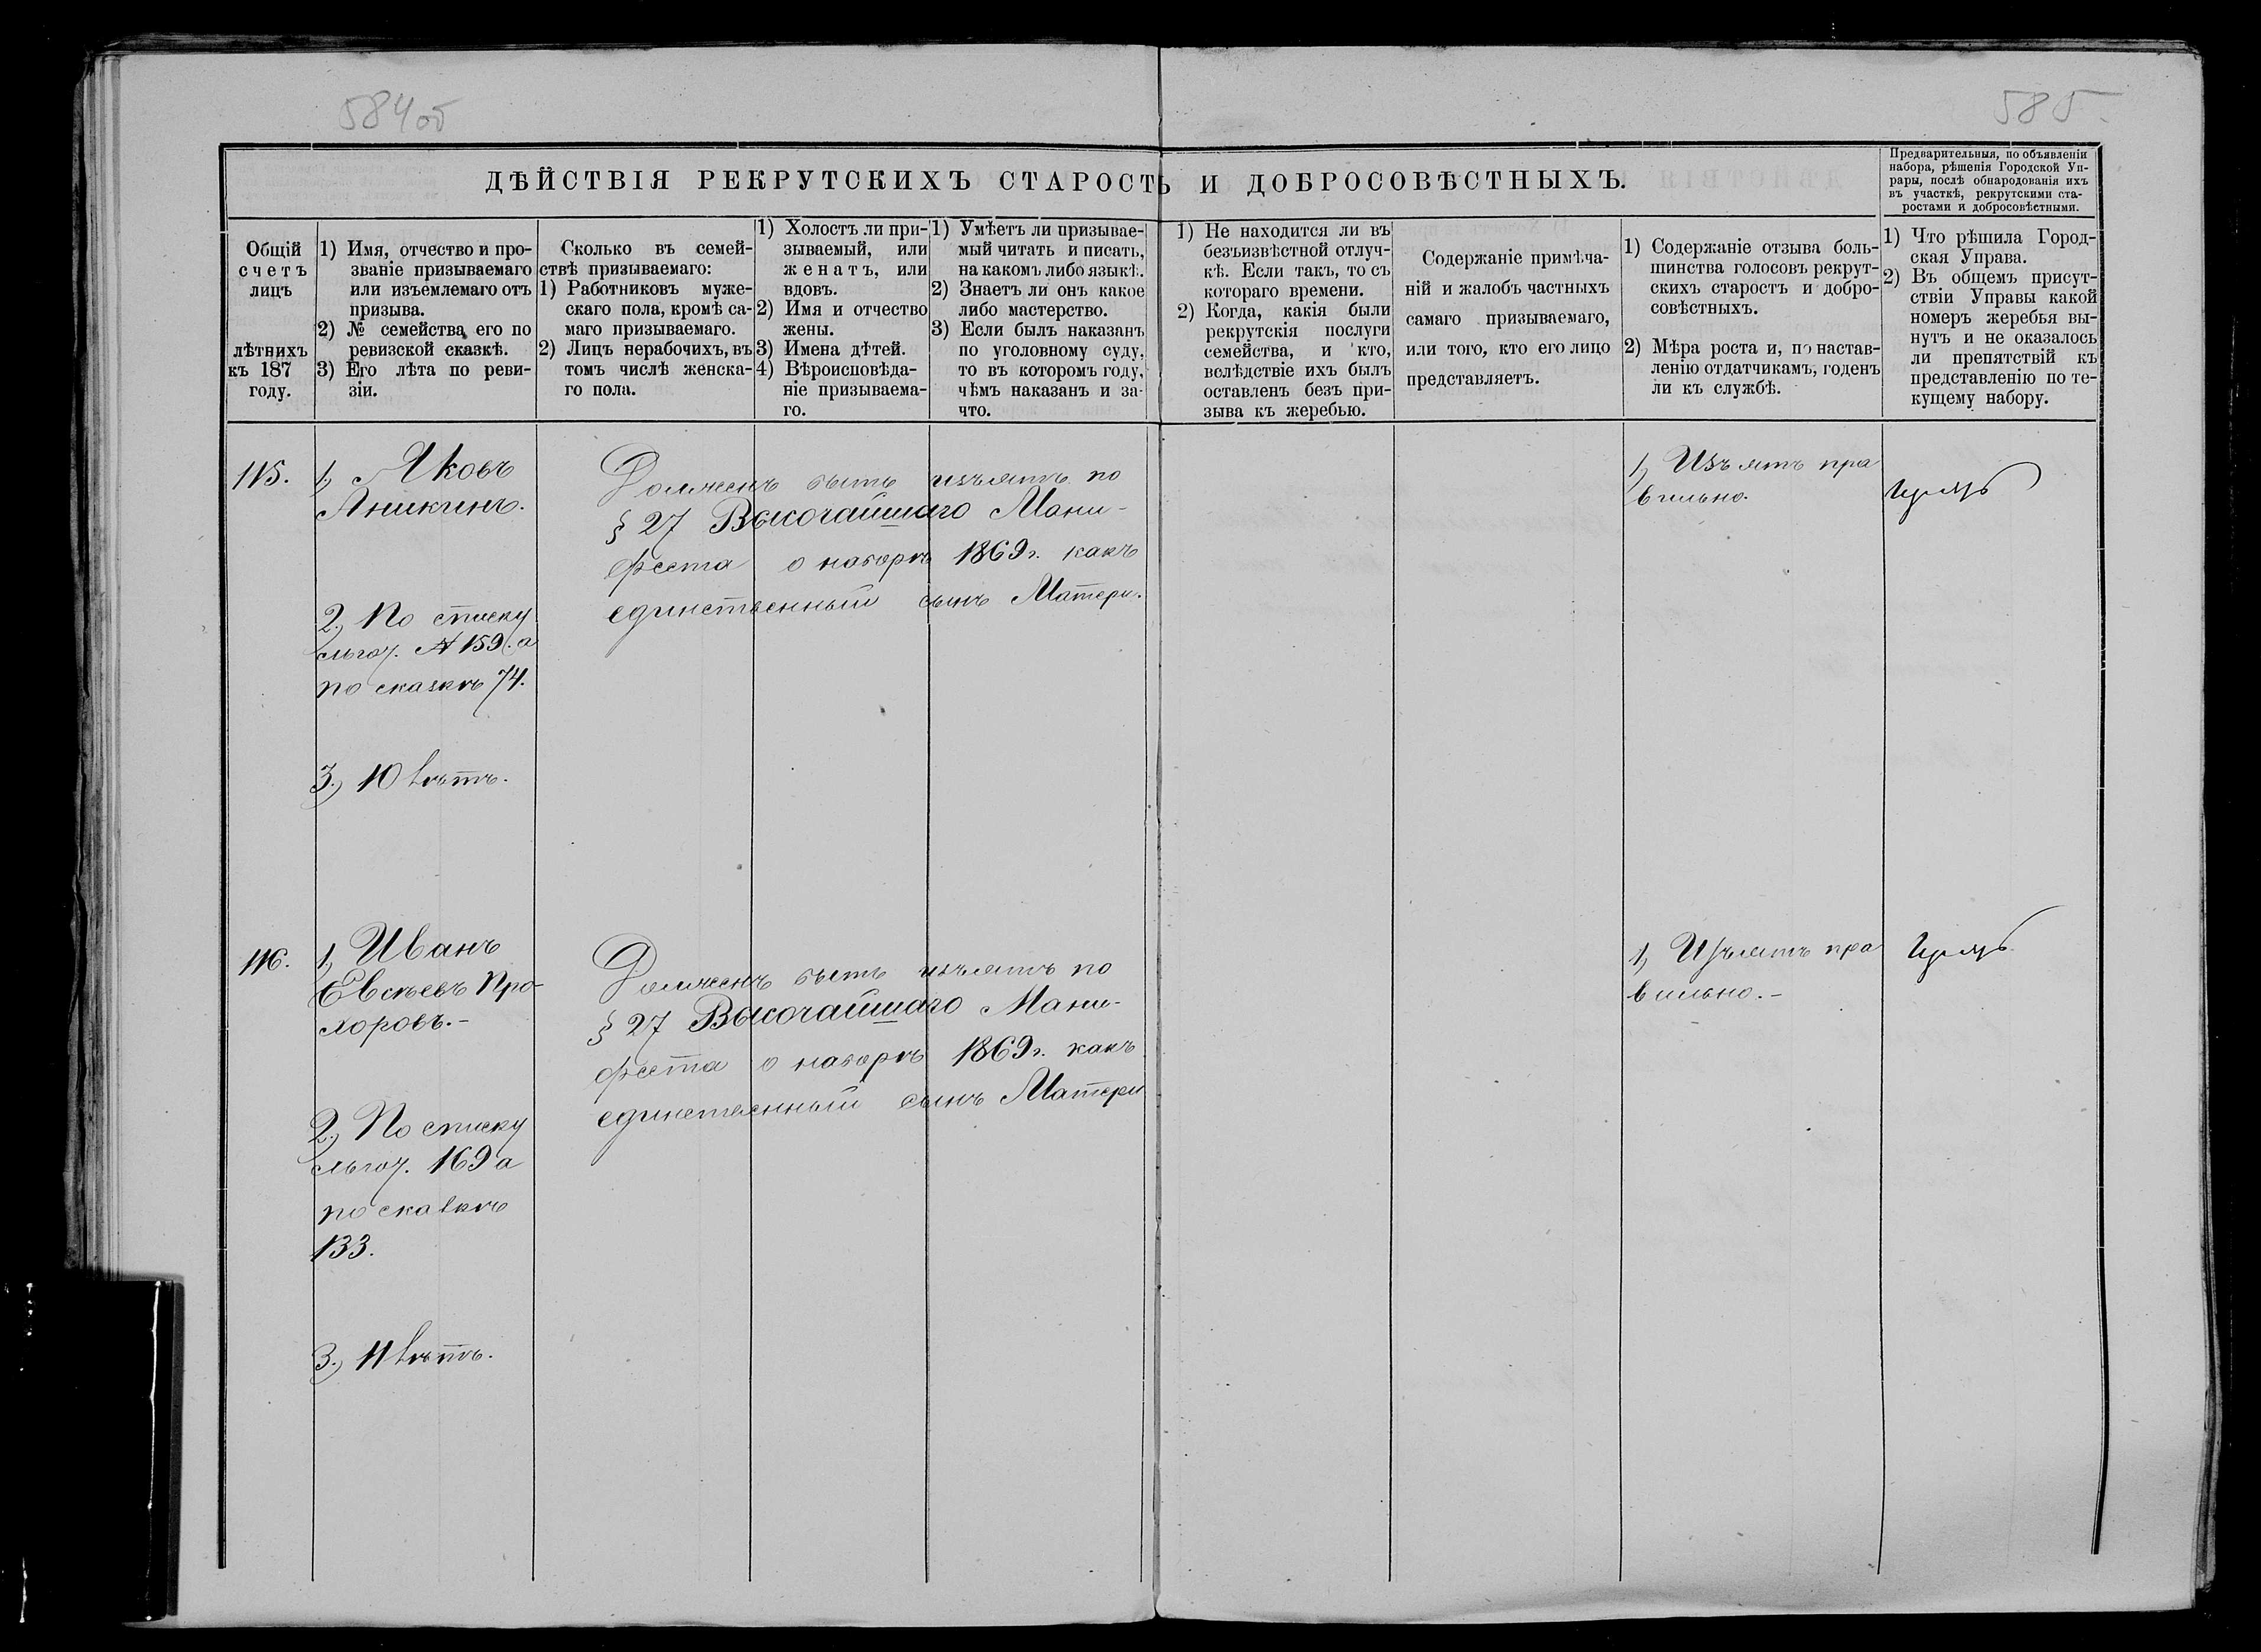 584об
585
ДѢЙСТВІЯ РЕКРУТСКИХЪ СТАРОСТЪ И ДОБРОСОВѢСТНЫХЪ.
Предварительныя, по объявленіи
набора, рѣшенія Городской Уп-
равы, послѣ обнародованія ихъ
въ участкѣ, рекрутскими ста-
ростами и добросовѣстными.
Общій
счетъ
лицъ
лѣтнихъ
къ 187
году.
1) Имя, отчество и про-
званіе призываемаго
или изъемлемаго отъ
призыва.
2) № семейства его по
ревизской сказкѣ.
3) Его лѣта по реви-
зіи.
Сколько въ семей-
ствѣ призываемаго:
1) Работниковъ муже-
скаго пола, кромѣ са-
маго призываемаго.
2) Лицъ нерабочихъ, въ
томъ числѣ женска-
го пола.
1) Холостъ ли при-
зываемый, или
женатъ, или
вдовъ.
2) Имя и отчество
жены.
3) Имена дѣтей.
4) Вѣроисповѣда-
ніе призываема-
го.
1) Умѣетъ ли призывае-
мый читать и писать,
на какомъ либо языкѣ.
2) Знаетъ ли онъ какое
либо мастерство.
3) Если былъ наказанъ
по уголовному суду,
то въ которомъ году,
чѣмъ наказанъ и за-
что.
1) Не находится ли въ
безъизвѣстной отлуч-
кѣ. Если такъ, то съ
котораго времени.
2) Когда, какія были
рекрутскія послуги
семейства, и кто,
вслѣдствіе ихъ былъ
оставленъ безъ при-
зыва къ жеребью.
Содержаніе примѣча-
ній и жалобъ частныхъ
самаго призываемаго,
или того, кто его лицо
представляетъ.
1) Содержаніе отзыва боль-
шинства голосовъ рекрут-
скихъ старостъ и добро-
совѣстныхъ.
2) Мѣра роста и, по настав-
ленію отдатчикамъ, годенъ
ли къ службѣ.
1) Что рѣшила Город-
ская Управа.
2) Въ общемъ присут-
ствіи Управы какой
номеръ жеребья вы-
нутъ и не оказалось
ли препятствій къ
представленію по те-
кущему набору.
115.
1, Яковъ
Аникинъ.
2, По списку
льгот. № 159. а
по сказкѣ 74.
3, 10 лѣтъ.
Долженъ быть изъятъ по
§ 27 Высочайшаго Мани-
феста о наборѣ 1869 г. какъ
единственный сынъ Матери.
1, Изъятъ пра
вильно.
116.
1, Иванъ
Евсѣевъ Про-
хоровъ.-
2, По списку
льгот. 169 а
по сказкѣ
133.
3, 11 лѣтъ.
Долженъ быть изъятъ по
§ 27 Высочайшаго Мани-
феста о наборѣ 1869 г. какъ
единственный сынъ Матери
1, Изъятъ пра
вильно.-